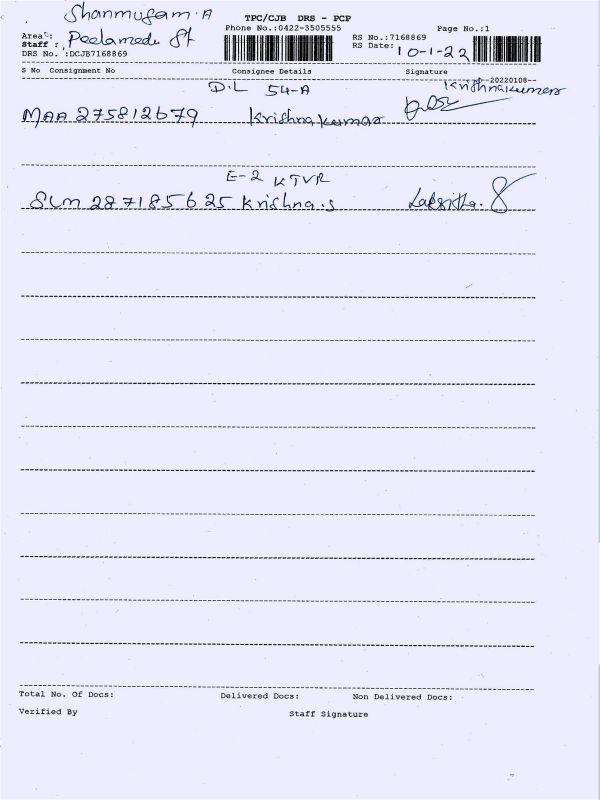 Shanmugam. A
TPC/CJB DRS - PCP
Phone No.:0422-3505555
Page No.:1
Area :
Staff :
Peelamedu St
DRS No. :DCJB7168869
RS No.:7168869
RS Date: 10-1-22
S No Consignment No Consignee Details Signature
--20220108--
D.L 54-A Krishnakumar
MAA 275812679 Krishnakumar
E-2 KTVR
SLM 287185625 Krishna.s
Total No. Of Docs: Delivered Docs: Non Delivered Docs:
Verified By Staff Signature